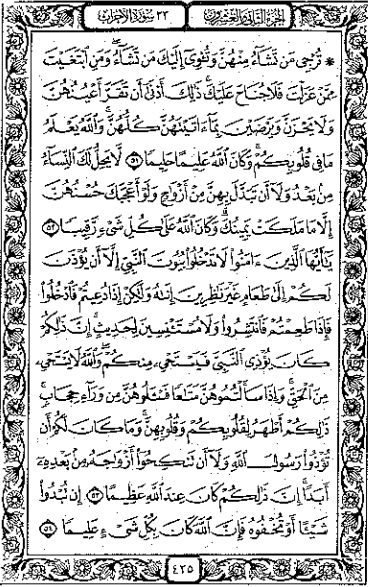 الجزء الثاني والعشرون ٣٣ سورة الأحزاب
* تُرْجِي مَن تَشَآءُ مِنْهُنَّ وَتُـْٔوِيٓ إِلَيْكَ مَن تَشَآءُ وَمَنِ ٱبْتَغَيْتَ
مِمَّنْ عَزَلْتَ فَلَا جُنَاحَ عَلَيْكَ ذَٰلِكَ أَدْنَىٰٓ أَن تَقَرَّ أَعْيُنُهُنَّ
وَلَا يَحْزَنَّ وَيَرْضَيْنَ بِمَآ ءَاتَيْتَهُنَّ كُلُّهُنَّ وَٱللَّهُ يَعْلَمُ
مَا فِي قُلُوبِكُمْ وَكَانَ ٱللَّهُ عَلِيمًا حَلِيمًا ٥١ لَّا يَحِلُّ لَكَ ٱلنِّسَآءُ
مِنۢ بَعْدُ وَلَآ أَن تَبَدَّلَ بِهِنَّ مِنْ أَزْوَٰجٍ وَلَوْ أَعْجَبَكَ حُسْنُهُنَّ
إِلَّا مَا مَلَكَتْ يَمِينُكَ وَكَانَ ٱللَّهُ عَلَىٰ كُلِّ شَيْءٍ رَّقِيبًا ٥٢
يَٰٓأَيُّهَا ٱلَّذِينَ ءَامَنُوا۟ لَا تَدْخُلُوا۟ بُيُوتَ ٱلنَّبِيِّ إِلَّآ أَن يُؤْذَنَ
لَكُمْ إِلَىٰ طَعَامٍ غَيْرَ نَٰظِرِينَ إِنَىٰهُ وَلَٰكِنْ إِذَا دُعِيتُمْ فَٱدْخُلُوا۟
فَإِذَا طَعِمْتُمْ فَٱنتَشِرُوا۟ وَلَا مُسْتَـْٔنِسِينَ لِحَدِيثٍ إِنَّ ذَٰلِكُمْ
كَانَ يُؤْذِي ٱلنَّبِيَّ فَيَسْتَحْيِۦ مِنكُمْ وَٱللَّهُ لَا يَسْتَحْيِۦ
مِنَ ٱلْحَقِّ وَإِذَا سَأَلْتُمُوهُنَّ مَتَٰعًا فَسْـَٔلُوهُنَّ مِن وَرَآءِ حِجَابٍ
ذَٰلِكُمْ أَطْهَرُ لِقُلُوبِكُمْ وَقُلُوبِهِنَّ وَمَا كَانَ لَكُمْ أَن
تُؤْذُوا۟ رَسُولَ ٱللَّهِ وَلَآ أَن تَنكِحُوٓا۟ أَزْوَٰجَهُۥ مِنۢ بَعْدِهِۦٓ
أَبَدًا إِنَّ ذَٰلِكُمْ كَانَ عِندَ ٱللَّهِ عَظِيمًا ٥٣ إِن تُبْدُوا۟
شَيْـًٔا أَوْ تُخْفُوهُ فَإِنَّ ٱللَّهَ كَانَ بِكُلِّ شَيْءٍ عَلِيمًا ٥٤
٤٢٥